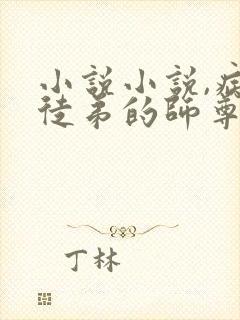 小說小說,病
徒弟的師尊
丁林